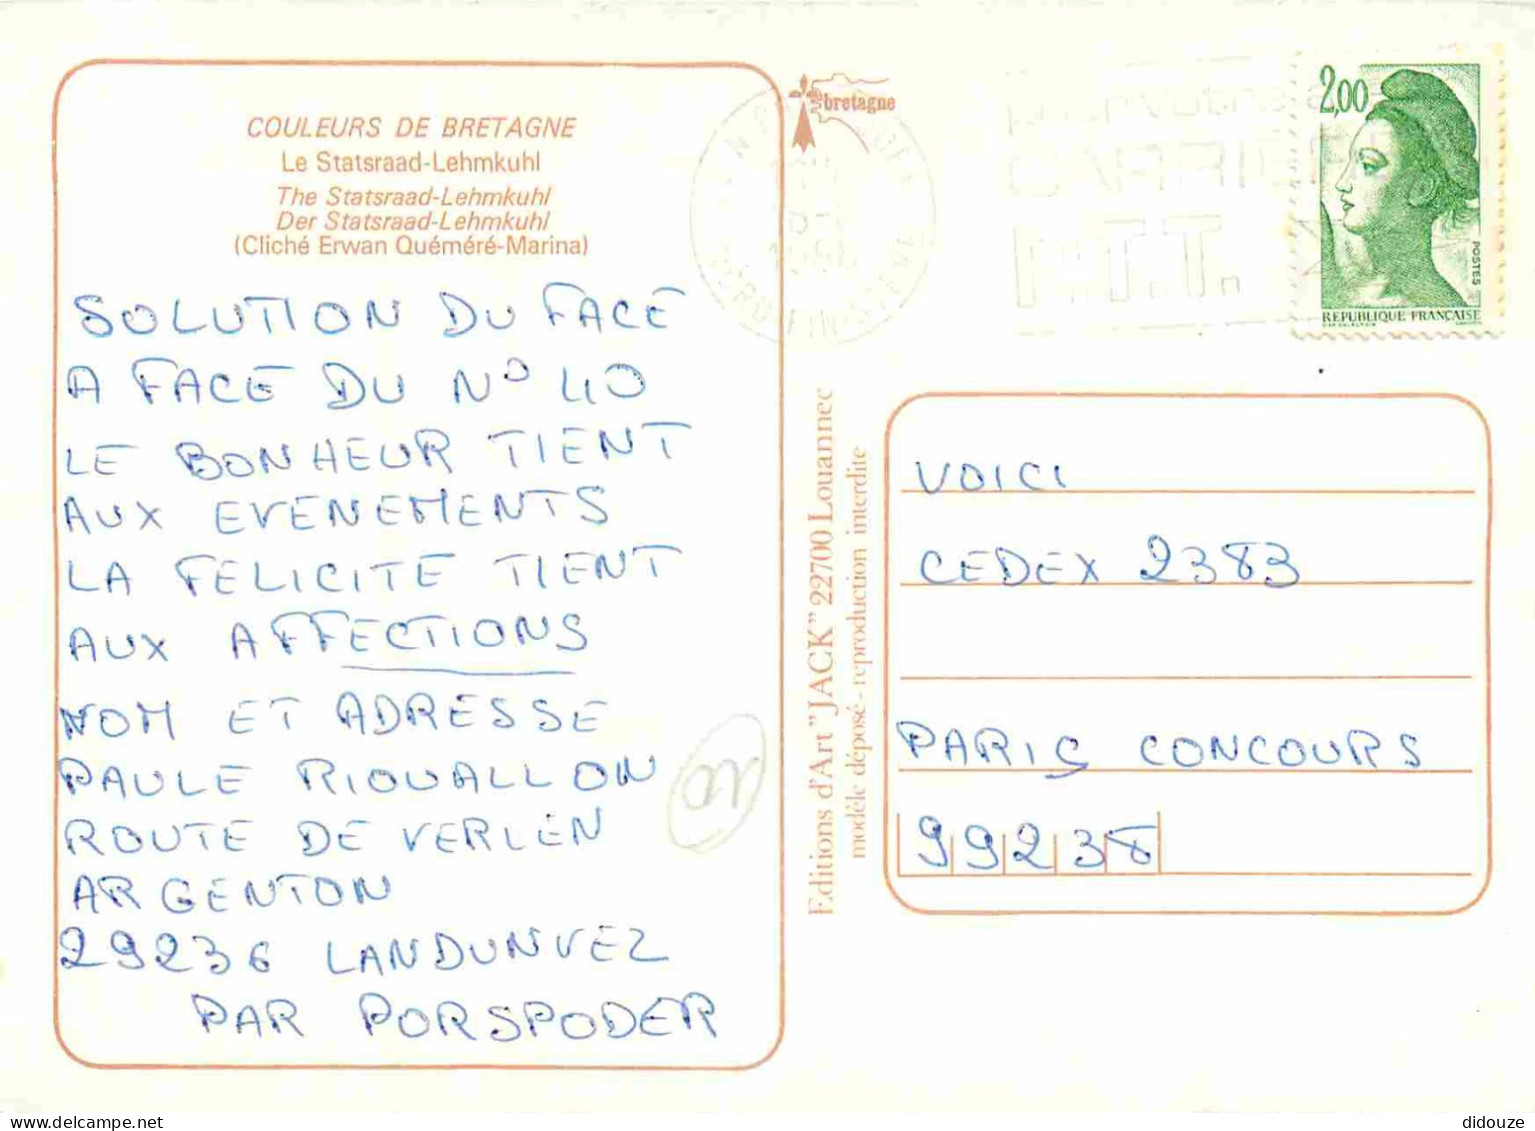 COULEURS DE BRETAGNE
Le Statsraad-Lehmkuhl
The Statsraad-Lehmkuhl
Der Statsraad-Lehmkuhl
(Cliché Erwan Quéméré-Marina)
SOLUTION DU FACE
A FACE DU N° 40
LE BONHEUR TIENT
AUX EVENEMENTS
LA FELICITE TIENT
AUX AFFECTIONS
NOM ET ADRESSE
PAULE RIOUALLON
ROUTE DE VERLEN
ARGENTON
29236 LANDUNVEZ
PAR PORSPODER
bretagne
Editions d'Art "JACK" 22700 Louannec
modèle déposé - reproduction interdite
P.T.T.
2,00
POSTES
REPUBLIQUE FRANÇAISE
VOICI
CEDEX 2383
PARIS CONCOURS
99238
didouze